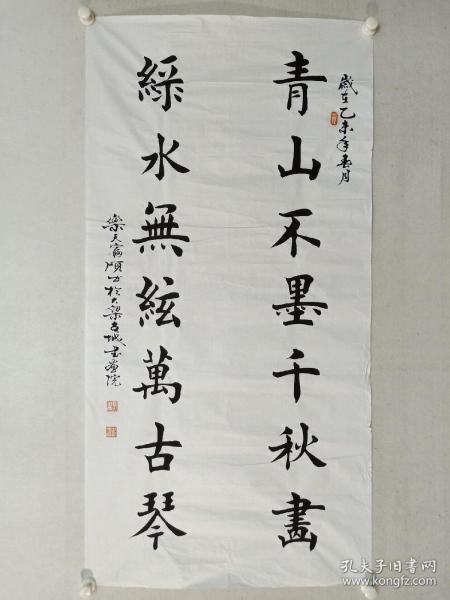 歲在乙未年春月
青山不墨千秋畫
綠水無絃萬古琴
樂天齋 於大梁古城書畫院
孔夫子旧书网
www.kongfz.com